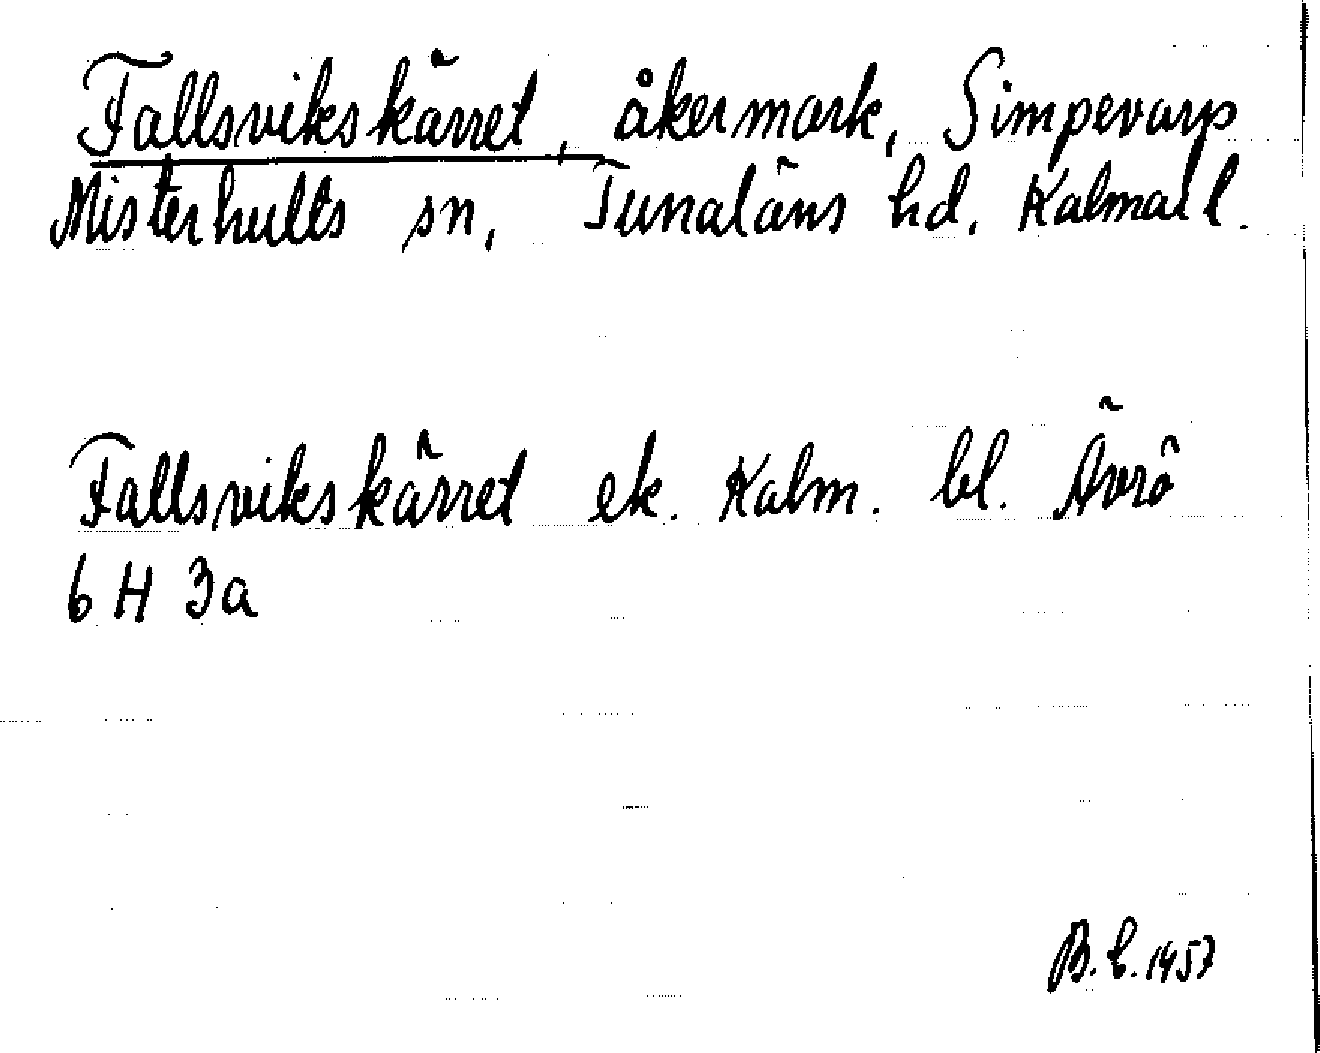 Fallsvikskärret, åkermark, Simpevarp
Misterhults sn, Tunaläns hd. Kalmar l.
Fallsvikskärret ek. Kalm. bl. Ävrö
6 H 3a
B. E. 1957